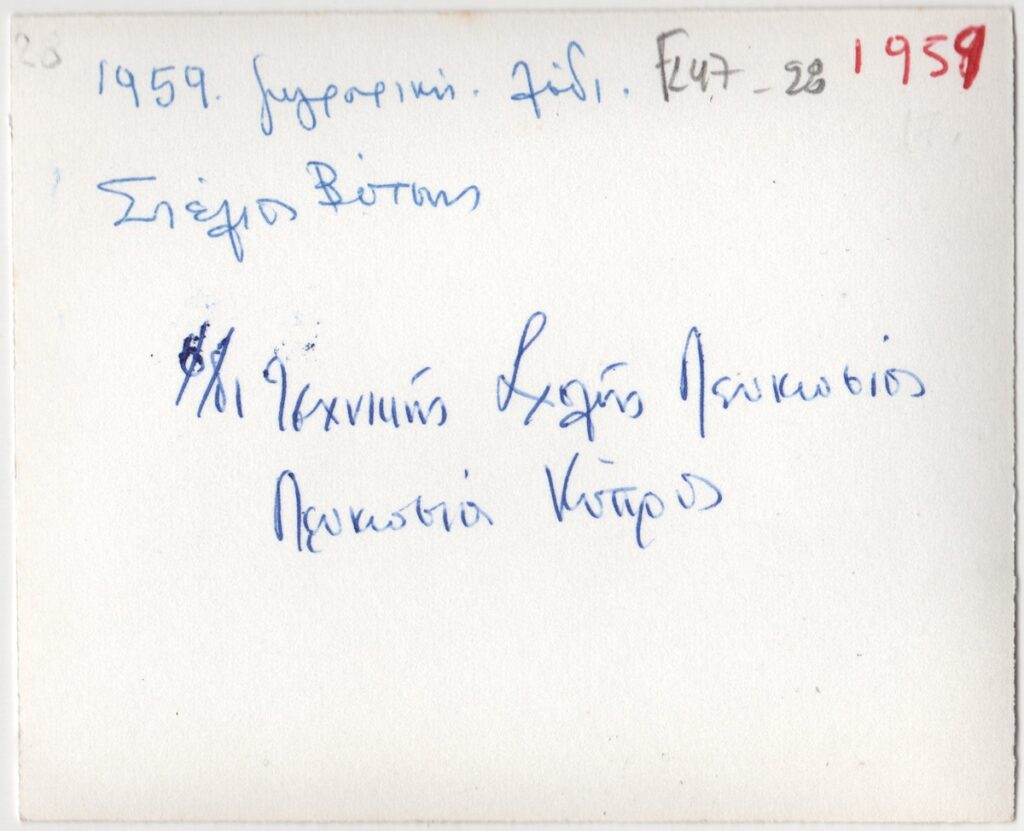 28
1959. ζωγραφική. λάδι. F247-28 1959
Στέλιος Βότσης
Τεχνικής Σχολής Λευκωσίας
Λευκωσία Κύπρος